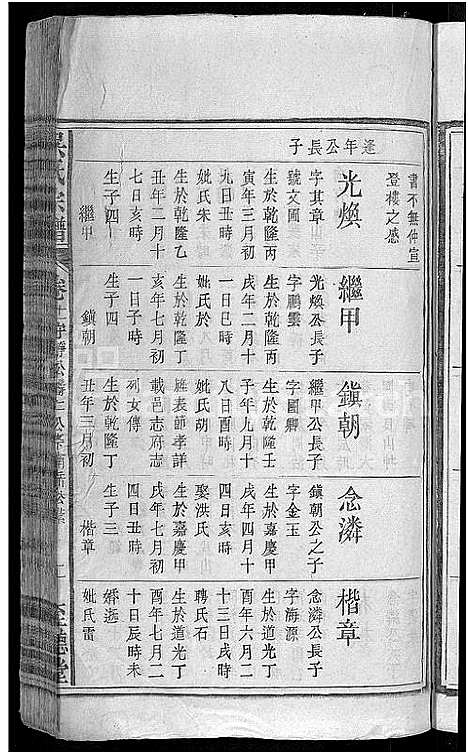 書不無仲宣
登樓之感
逢年公長子
光煥
字其章
號文圃
生於乾隆丙
寅年三月初
九日丑時
妣氏朱
生於乾隆乙
丑年二月十
七日亥時
生子四
繼甲
繼甲
光煥公長子
字鵬雲
生於乾隆丙
戌年二月十
一日巳時
妣氏於
生於乾隆丁
亥年七月初
一日子時
生子四
鎮朝
鎮朝
繼甲公長子
字國卿
生於乾隆壬
子年九月十
八日酉時
妣氏胡
旌表節孝詳
載邑志府志
列女傳
生於乾隆丁
丑年三月初
念潾
鎮朝公之子
字金玉
生於嘉慶甲
戌年四月十
四日亥時
娶洪氏
生於嘉慶甲
戌年七月初
四日丑時
生子三
楷章
楷章
念潾公長子
字海源
生於道光丁
酉年六月二
十三日戌時
聘氏石
生於道光丁
酉年七月二
十日辰時未
婚逝
妣氏雷
吳氏宗譜
卷十一
至德堂